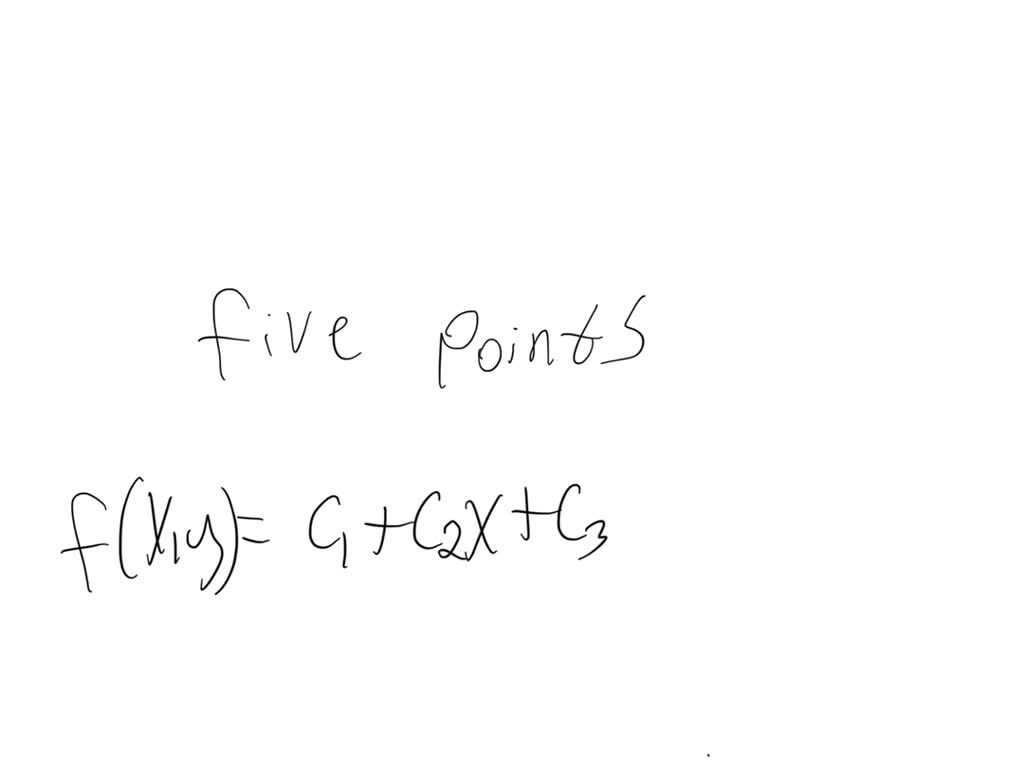 five points
f(x,y)= C₁+C₂x+C₃